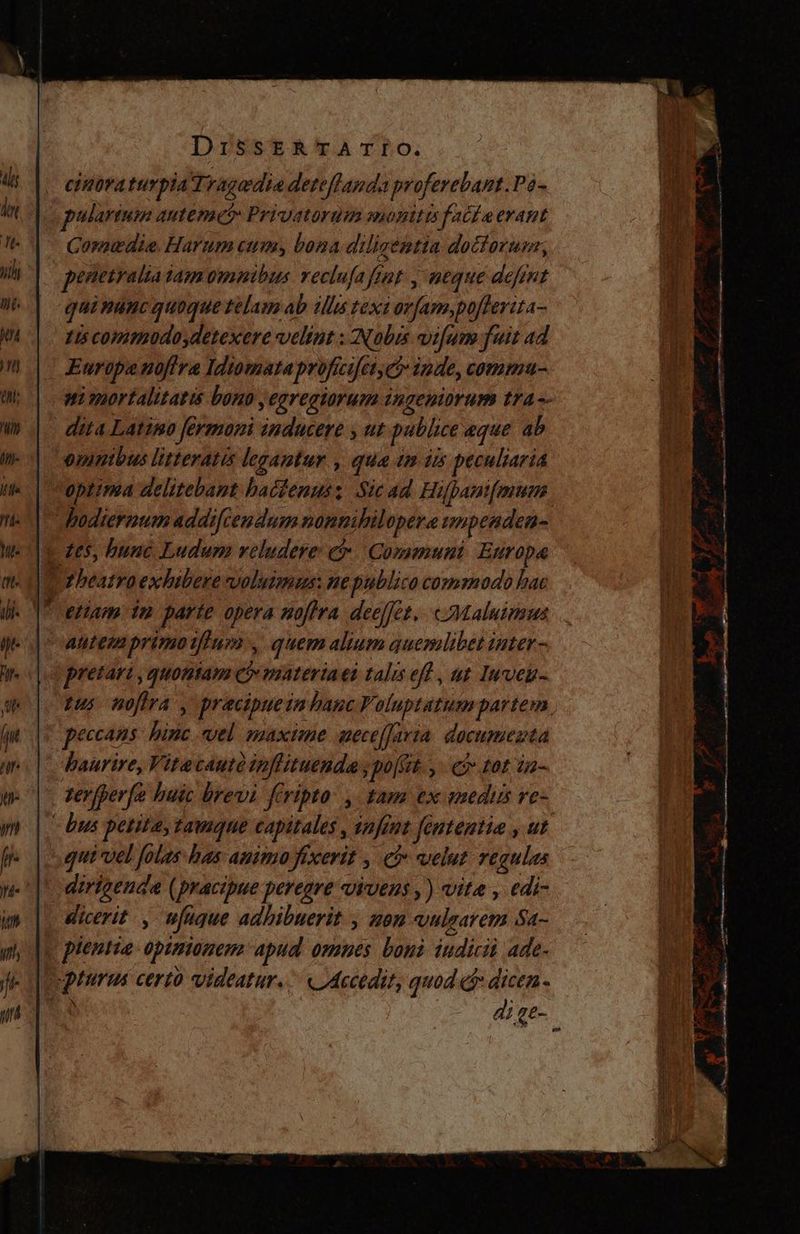 DISSERTATIO.
cinora turpia Tragœdiæ deteſtanda proferebant. Po-
pularium autem & Privatorum monitis facta erant
Comœdiæ. Harum cum, bona diligentia doctorum,
penetralia tam omnibus recluſa ſint, neque deſint
qui nunc quoque telam ab illis texi orſam, poſterita-
tis commodo, detexere velint: Nobis viſum fuit ad
Europæ noſtræ Idiomata proficiſci, & inde, commu-
ni mortalitatis bono, egregiorum ingeniorum tra-
dita Latino ſermoni inducere, ut publice æque ab
omnibus litteratis legantur, quæ in iis peculiaria
optima delitebant hactenus; Sic ad Hiſpaniſmum
hodiernum addiſcendum nonnihil operæ impenden-
tes, hunc Ludum reludere & Communi Europæ
theatro exhibere voluimus: ne publico commodo hac
etiam in parte opera noſtra deeſſet. Maluimus
autem primo iſtum, quem alium quemlibet inter-
pretari, quoniam & materia ei talis eſt, ut Juven-
tus noſtra, præcipue in hanc Voluptatum partem
peccans hinc vel maxime neceſſaria documenta
haurire, Vitæ cautè inſtituendæ, poſſit, & tot in-
terſperſæ huic brevi ſcripto, tam ex mediis re-
bus petitæ, tamque capitales, inſint ſententiæ, ut
qui vel ſolas has animo fixerit, & velut regulas
dirigendæ (præcipue peregre vivens,) vitæ, edi-
dicerit, uſuque adhibuerit, non vulgarem Sa-
pientiæ opinionem apud omnes boni iudicii ade-
pturus certò videatur. Accedit, quod & dicen-
di ge-